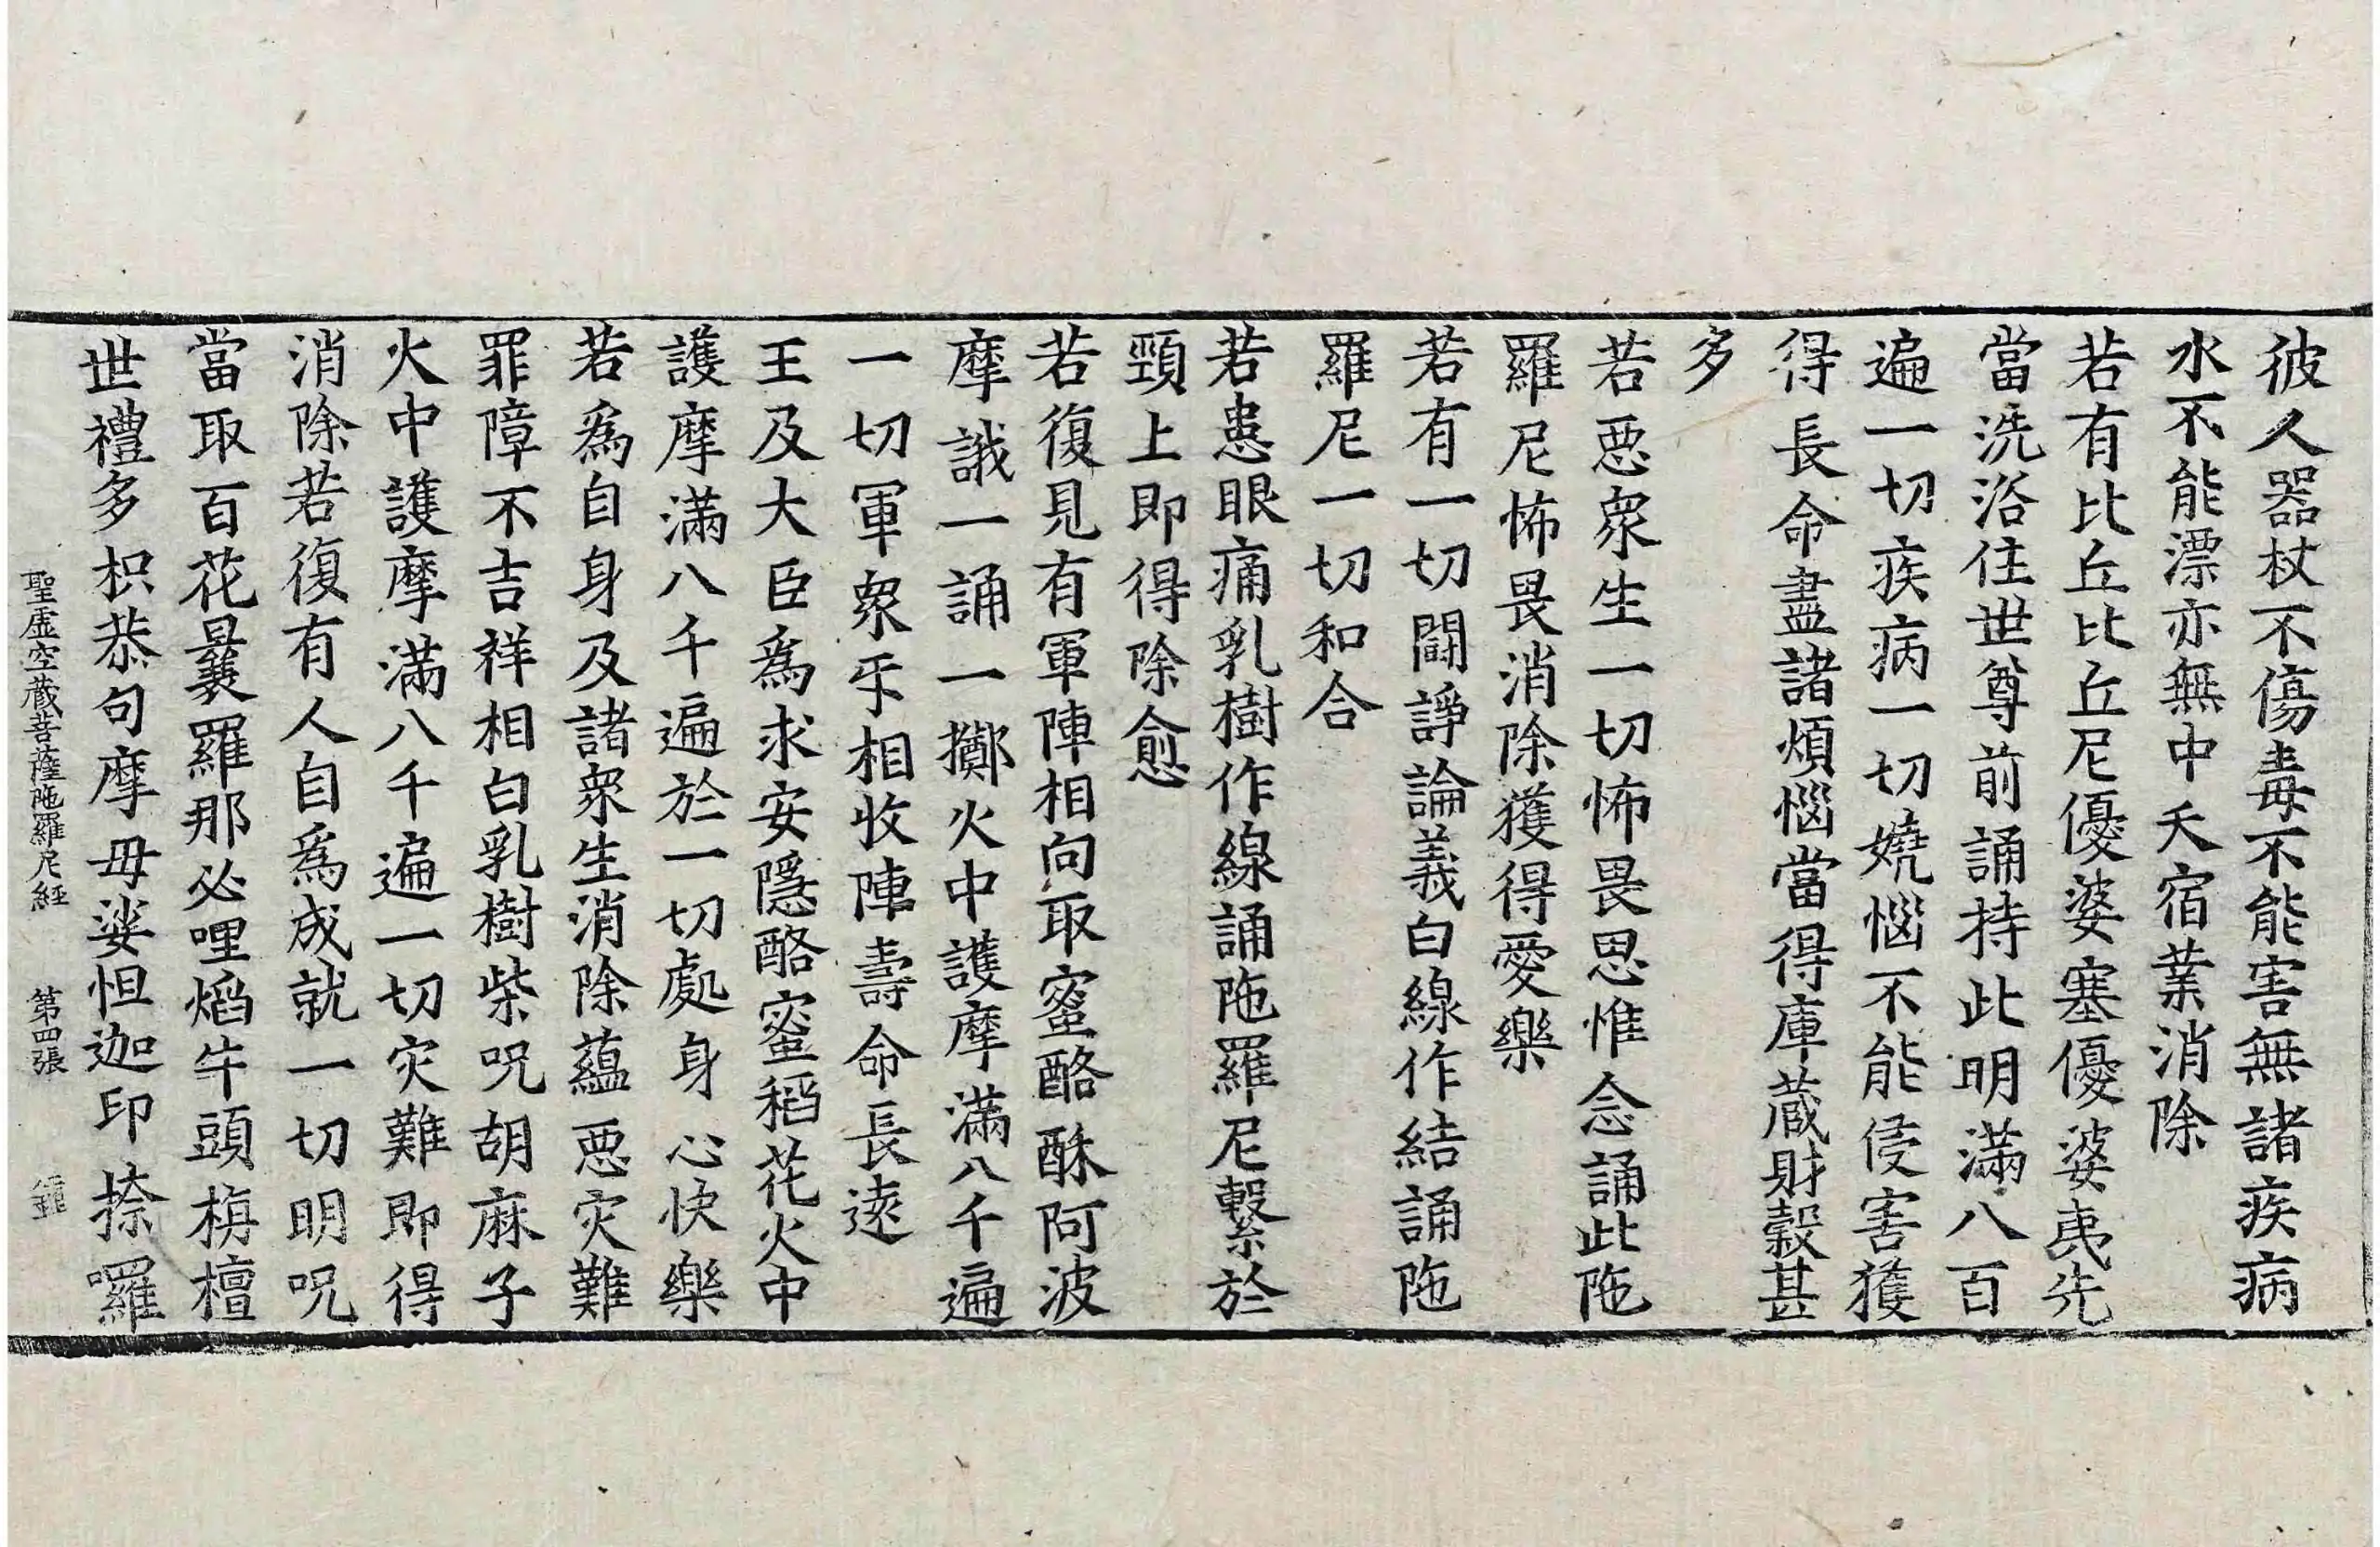 彼人器杖不傷毒不能害無諸疾病
水不能漂亦無中夭宿業消除
若有比丘比丘尼優婆塞優婆夷先
當洗浴住世尊前誦持此明滿八百
遍一切疾病一切嬈惱不能侵害獲
得長命盡諸煩惱當得庫蔵財糓甚
多
若惡衆生一切怖畏思惟念誦此陁
羅尼怖畏消除獲得愛樂
若有一切鬪諍論義白線作結誦陁
羅尼一切和合
若患眼痛乳樹作線誦陁羅尼繫於
頸上即得除愈
若復見有軍陣相向取蜜酪酥阿波
摩誐一誦一擲火中護摩滿八千遍
一切軍衆乐相收陣壽命長遠
王及大臣爲求安隱酪蜜稻花火中
護摩滿八千遍於一切處身心快樂
若爲自身及諸衆生消除蘊惡灾難
罪障不吉祥相白乳樹柴呪胡麻子
火中護摩滿八千遍一切灾難即得
消除若復有人自爲成就一切明呪
當取百花曩羅那必哩焰牛頭栴檀
世禮多枳恭句摩毋娑怛迦印捺囉
聖虛空蔵菩薩陁羅尼經 第四張